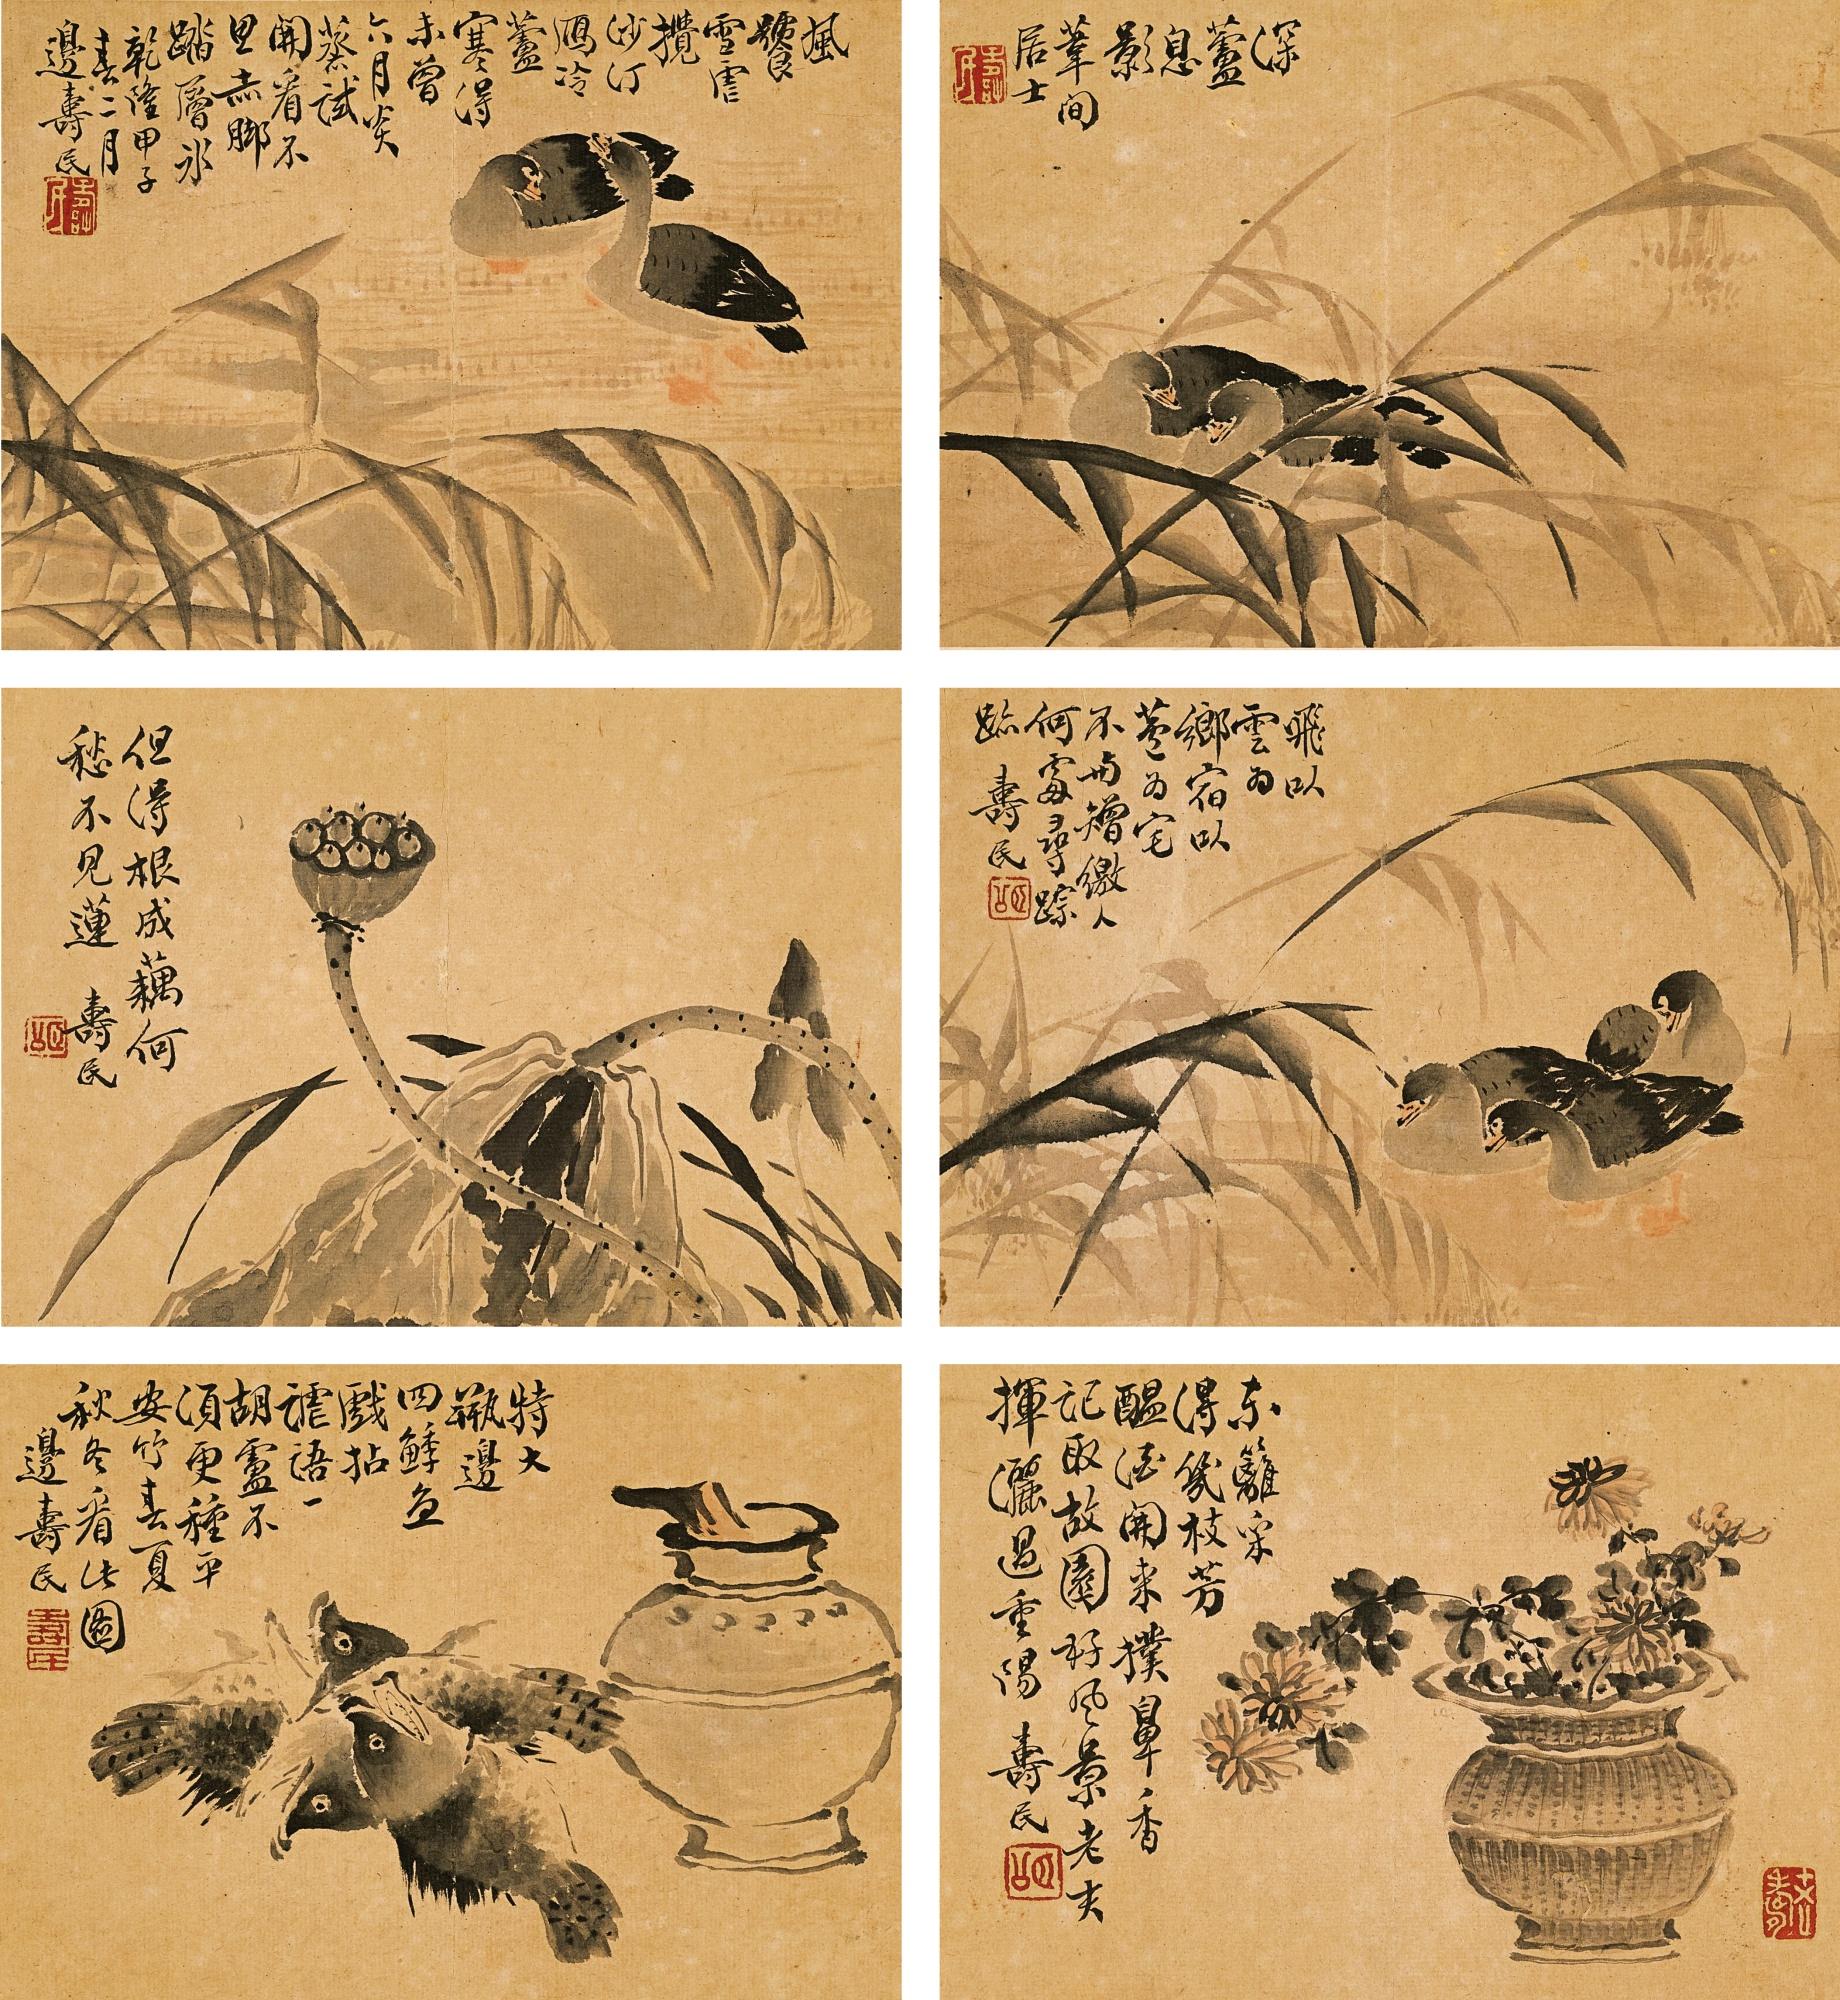 深
蘆
息
影
葦間
居士
風
饕
雪虐
攪
沙汀
鴈冷
蘆
寒得
未曾
六月炎
蒸試
開看不
思赤脚
踏層氷
乾隆甲子
春二月
邊壽民
飛以
雲為
鄉宿以
蘆為宅
不與矰繳人
何處尋踪
跡 壽民
但得根成藕何
愁不見蓮 壽民
東籬采
得幾枝芳
醞酒開來撲鼻香
記取故園好風景老夫
揮灑過重陽 壽民
特大
瓶邊
四鯚魚
戲拈
謔語一
胡盧不
須更種平
安竹春夏
秋冬看此圖
邊壽民
壽民